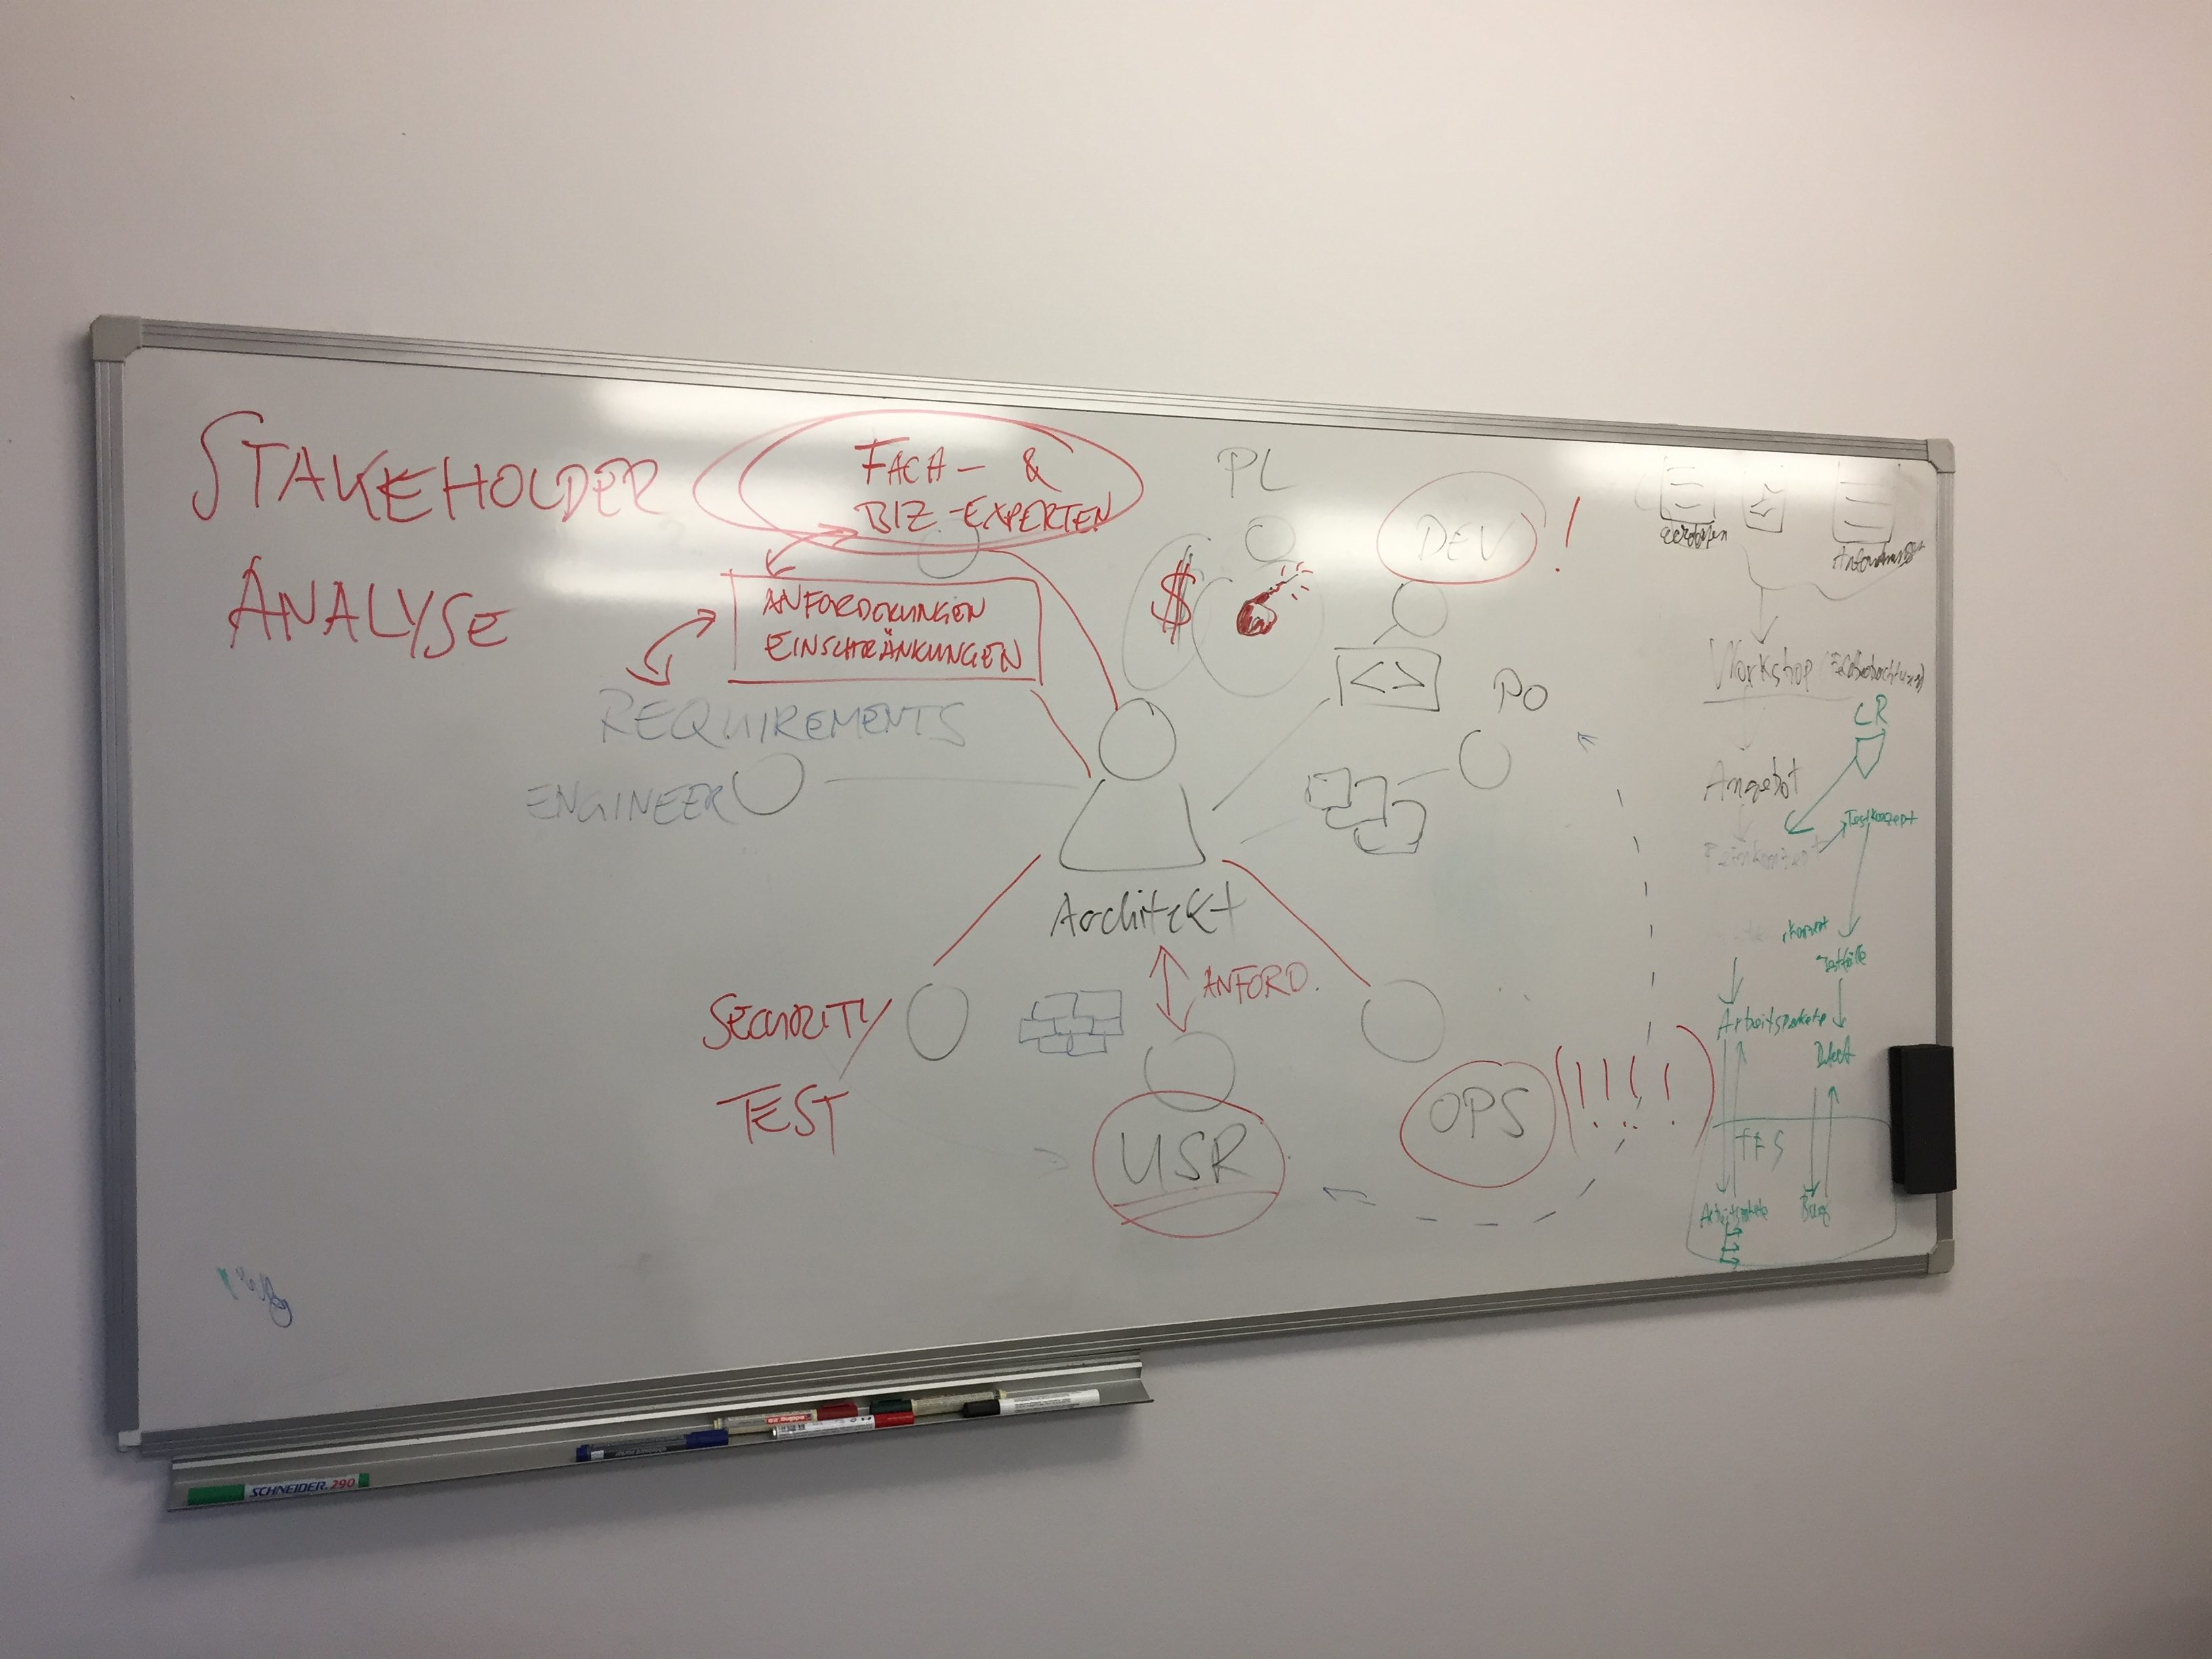 STAKEHOLDER
ANALYSE
FACH- &
BIZ.-EXPERTEN
ANFORDERUNGEN
EINSCHRÄNKUNGEN
REQUIREMENTS
ENGINEER
PL
$
DEV !
< >
PO
Architekt
ANFORD.
SECURITY
TEST
USR
OPS (!!!!)
Workshop
CR
Angebot
Testkonzept
Feinkonzept
Testfälle
Arbeitspakete
Defect
TFS
Arbeitspakete
Bug
SCHNEIDER. 290